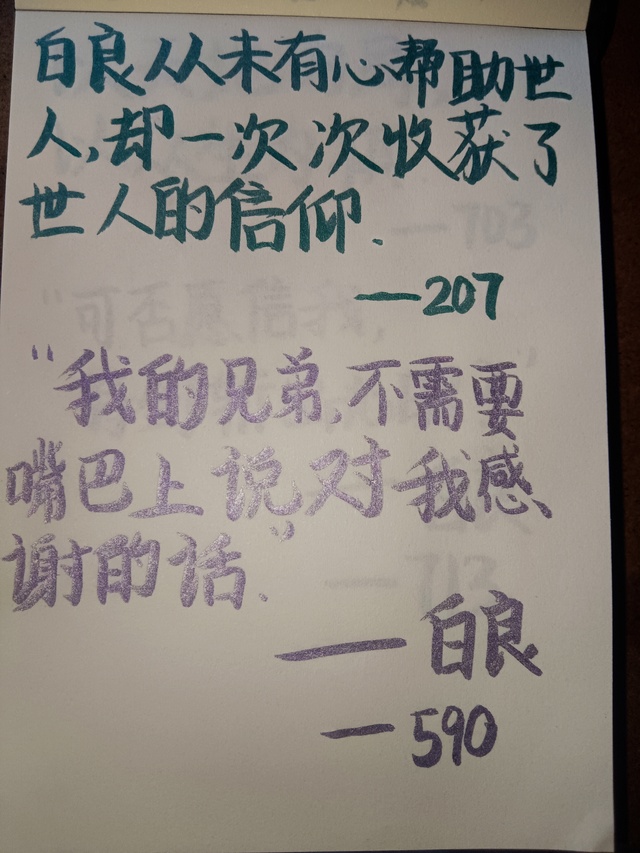 白良从未有心帮助世
人,却一次次收获了
世人的信仰.
—207
"我的兄弟,不需要
嘴巴上说对我感
谢的话."
—白良
—590